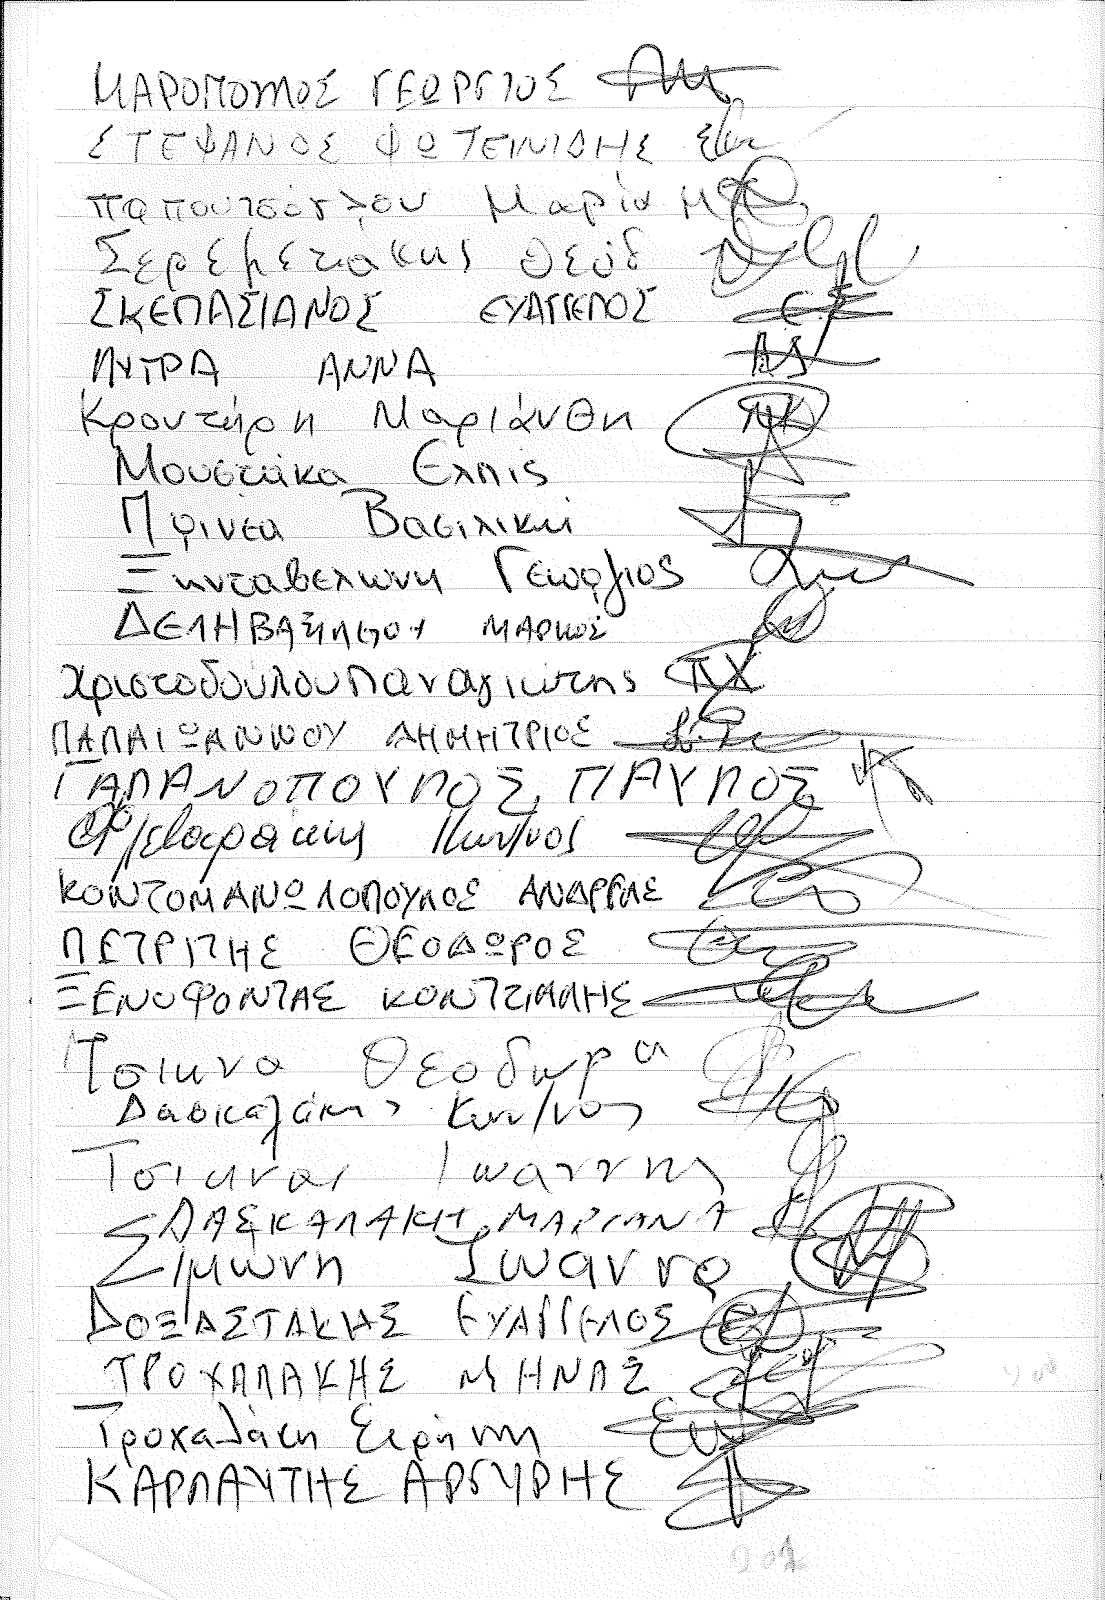 ΜΑΡΟΠΟΥΛΟΣ ΓΕΩΡΓΙΟΣ
ΣΤΕΦΑΝΟΣ ΦΩΤΕΙΝΙΔΗΣ
Παπουτσόγλου Μαρία
Σερεμετάκης Θεόδ
ΣΚΕΠΑΣΙΑΝΟΣ ΕΥΑΓΓΕΛΟΣ Ε.Σ
ΛΥΤΡΑ ΑΝΝΑ Α.Λ
Κρουτήρη Μαριάνθη ΜΚ
Μουστάκα Ελπίς
Πρινέα Βασιλική
Ξηνταβελώνη Γεώργιος
ΔΕΛΗΒΑΣΙΛΕΙΟΥ ΜΑΡΚΟΣ
Χριστοδούλου Παναγιώτης ΠΧ
ΠΑΠΑΙΩΑΝΝΟΥ ΔΗΜΗΤΡΙΟΣ
ΓΑΛΑΝΟΠΟΥΛΟΣ ΠΑΥΛΟΣ
Κων/νος
ΚΟΝΤΟΜΑΝΩΛΟΠΟΥΛΟΣ ΑΝΔΡΕΑΣ
ΠΕΤΡΙΤΗΣ ΘΕΟΔΩΡΟΣ
ΞΕΝΟΦΟΝΤΑΣ ΚΟΝΤΖΙΑΛΗΣ
Τσικνα Θεοδωρα
Δασκαλάκης Κων/νος
Τσικνας Ιωαννης
ΔΑΣΚΑΛΑΚΗ ΜΑΡΙΑΝΑ
Σιμώνη Ιωάννα
ΔΟΞΑΣΤΑΚΗΣ ΕΥΑΓΓΕΛΟΣ
ΤΡΟΧΑΛΑΚΗΣ ΜΗΝΑΣ
Τροχαλάκη Ειρήνη
ΚΑΡΠΑΥΤΗΣ ΑΡΓΥΡΗΣ
201